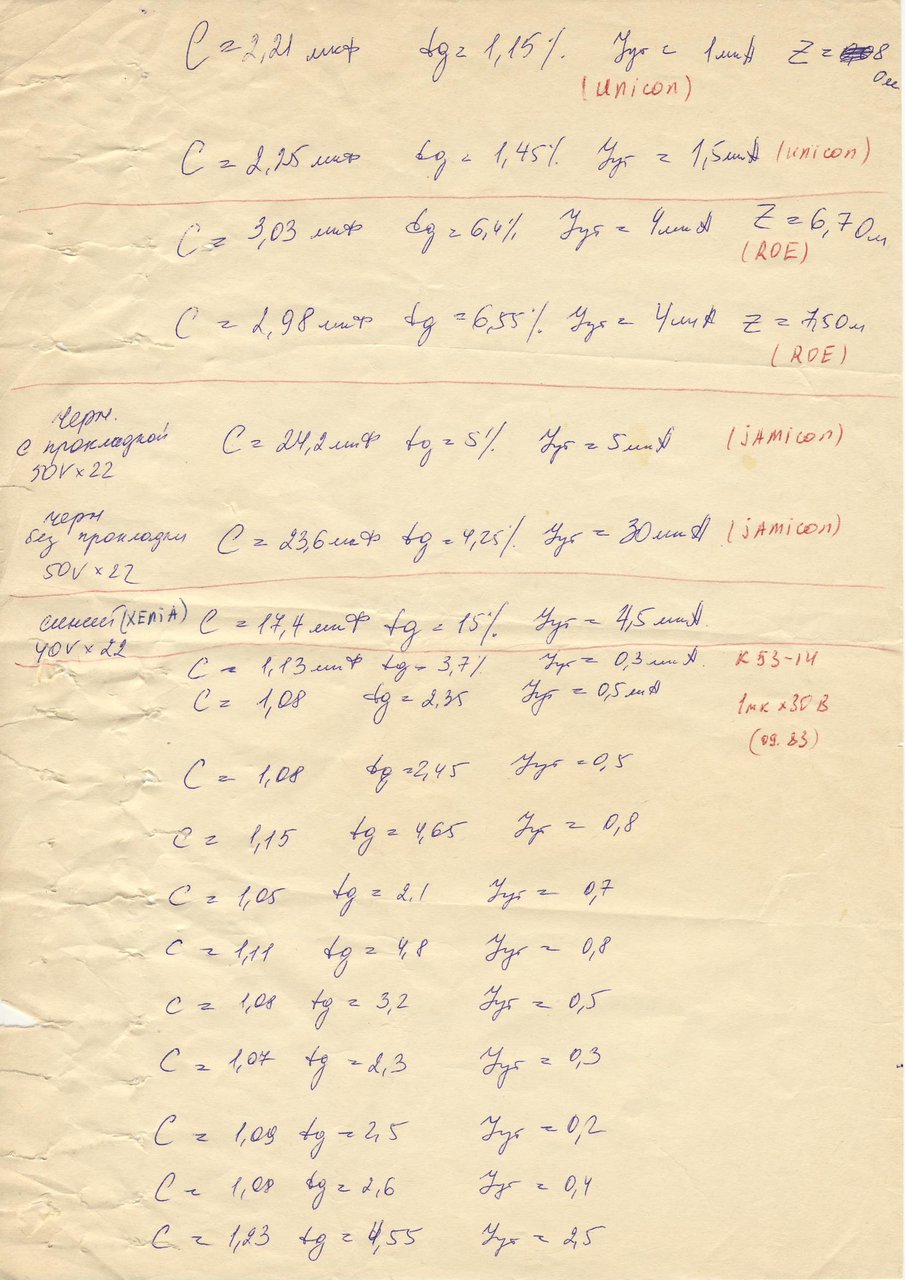 C = 2,21 мкФ tg = 1,15% Iут = 1мкА Z = 8 Ом
(Unicon)
C = 2,25 мкФ tg = 1,45% Iут = 1,5мкА (Unicon)
C = 3,03 мкФ tg = 6,4% Iут = 4мкА Z = 6,7 Ом
(ROE)
C = 2,98 мкФ tg = 6,55% Iут = 4мкА Z = 7,5 Ом
(ROE)
черн.
с прокладкой C = 24,2 мкФ tg = 5% Iут = 5мкА (jAMicon)
50V x 22
черн
без прокладки C = 23,6 мкФ tg = 4,25% Iут = 30мкА (jAMicon)
50V x 22
синий C = 17,4 мкФ tg = 15% Iут = 4,5мкА.
40V x 22
C = 1,13 мкФ tg = 3,7% Iут = 0,3мкА. К53-14
C = 1,08 tg = 2,35 Iут = 0,5мА 1мк x 30В
(09.83)
C = 1,08 tg = 2,45 Iут = 0,5
C = 1,15 tg = 4,65 Iут = 0,8
C = 1,05 tg = 2.1 Iут = 0,7
C = 1,11 tg = 4,8 Iут = 0,8
C = 1,08 tg = 3,2 Iут = 0,5
C = 1,07 tg = 2,3 Iут = 0,3
C = 1,09 tg = 2,5 Iут = 0,2
C = 1,08 tg = 2,6 Iут = 0,4
C = 1,23 tg = 4,55 Iут = 2,5